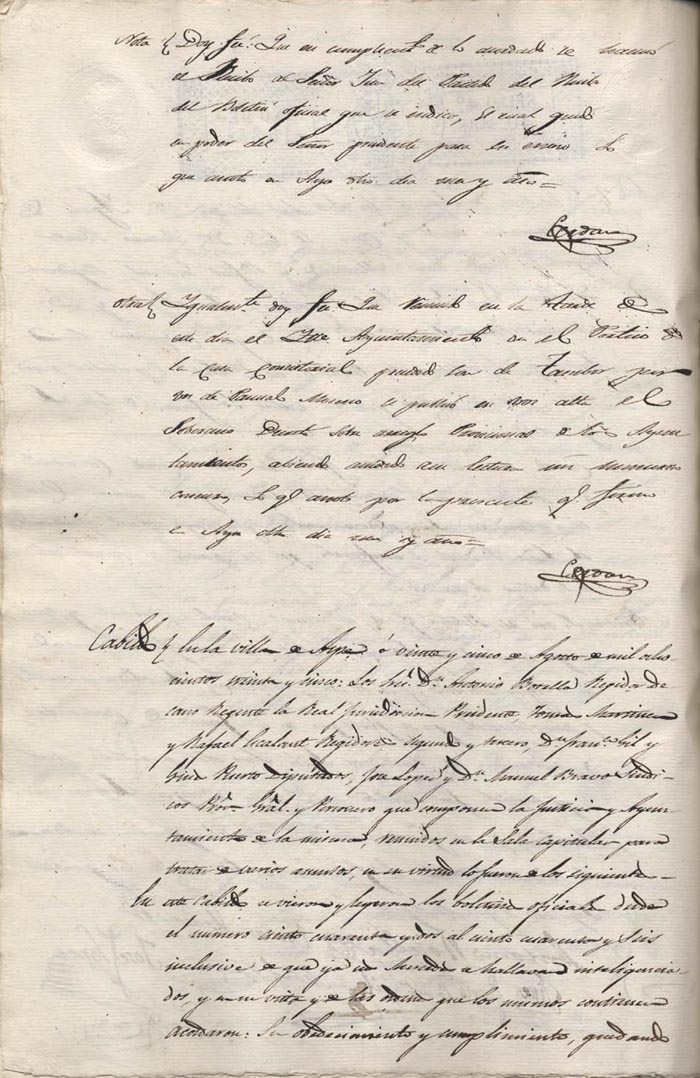 Nota Doy fé: Que en cumplimto de lo acordado se
el Recibo de Señor Juez del Partido del Recibo
del Boletin oficial que se indica, el cual queda
en poder del Señor precidente para su envio. Lo
que anoto en Aspe dho dia mes y año =
Cerdan
Otra Ygualmte doy fé: Que reunido en la tarde de
este dia el Yltre Ayuntamiento en el Portico de
la casa consistorial, precedido toque de Tambor por
voz de Pascual Moreno se publicó en voz alta el
Soberano Decreto sobre arreglo Provicional de los Ayun
tamientos, abiendo acudido a su lectura un numeroso
concurso. Lo qe anoto por la presente qe firmo
en Aspe dho dia mes y año =
Cerdan
Cabildo En la villa de Aspe á veinte y cinco de Agosto de mil ocho
cientos treinta y cinco: Los Sres Dn Antonio Botella Regidor de
cano Regente la Real Jurisdiccion Precidente Tomas Martinez
y Rafael Escalant Regidores segundo y tercero, Dn Franco Gil y
Puerto Diputados, Jose Lopez y Dn Manuel Bravo Sindi
cos Pror Gral. y Personero que componen la Justicia y Ayun
tamiento de la misma, reunidos en la Sala Capitular para
tratar de varios asuntos, en su virtud lo fueron de los siguientes
En este Cabildo se vieron y leyeron los boletines oficiales desde
el numero ciento cuarenta y dos al ciento cuarenta y seis
inclusive de que ya sus Mercedes se hallavan inteligencia
dos, y en su vista y de las ordenes que los mismos contienen
acordaron: Su obedecimiento y cumplimiento, quedando